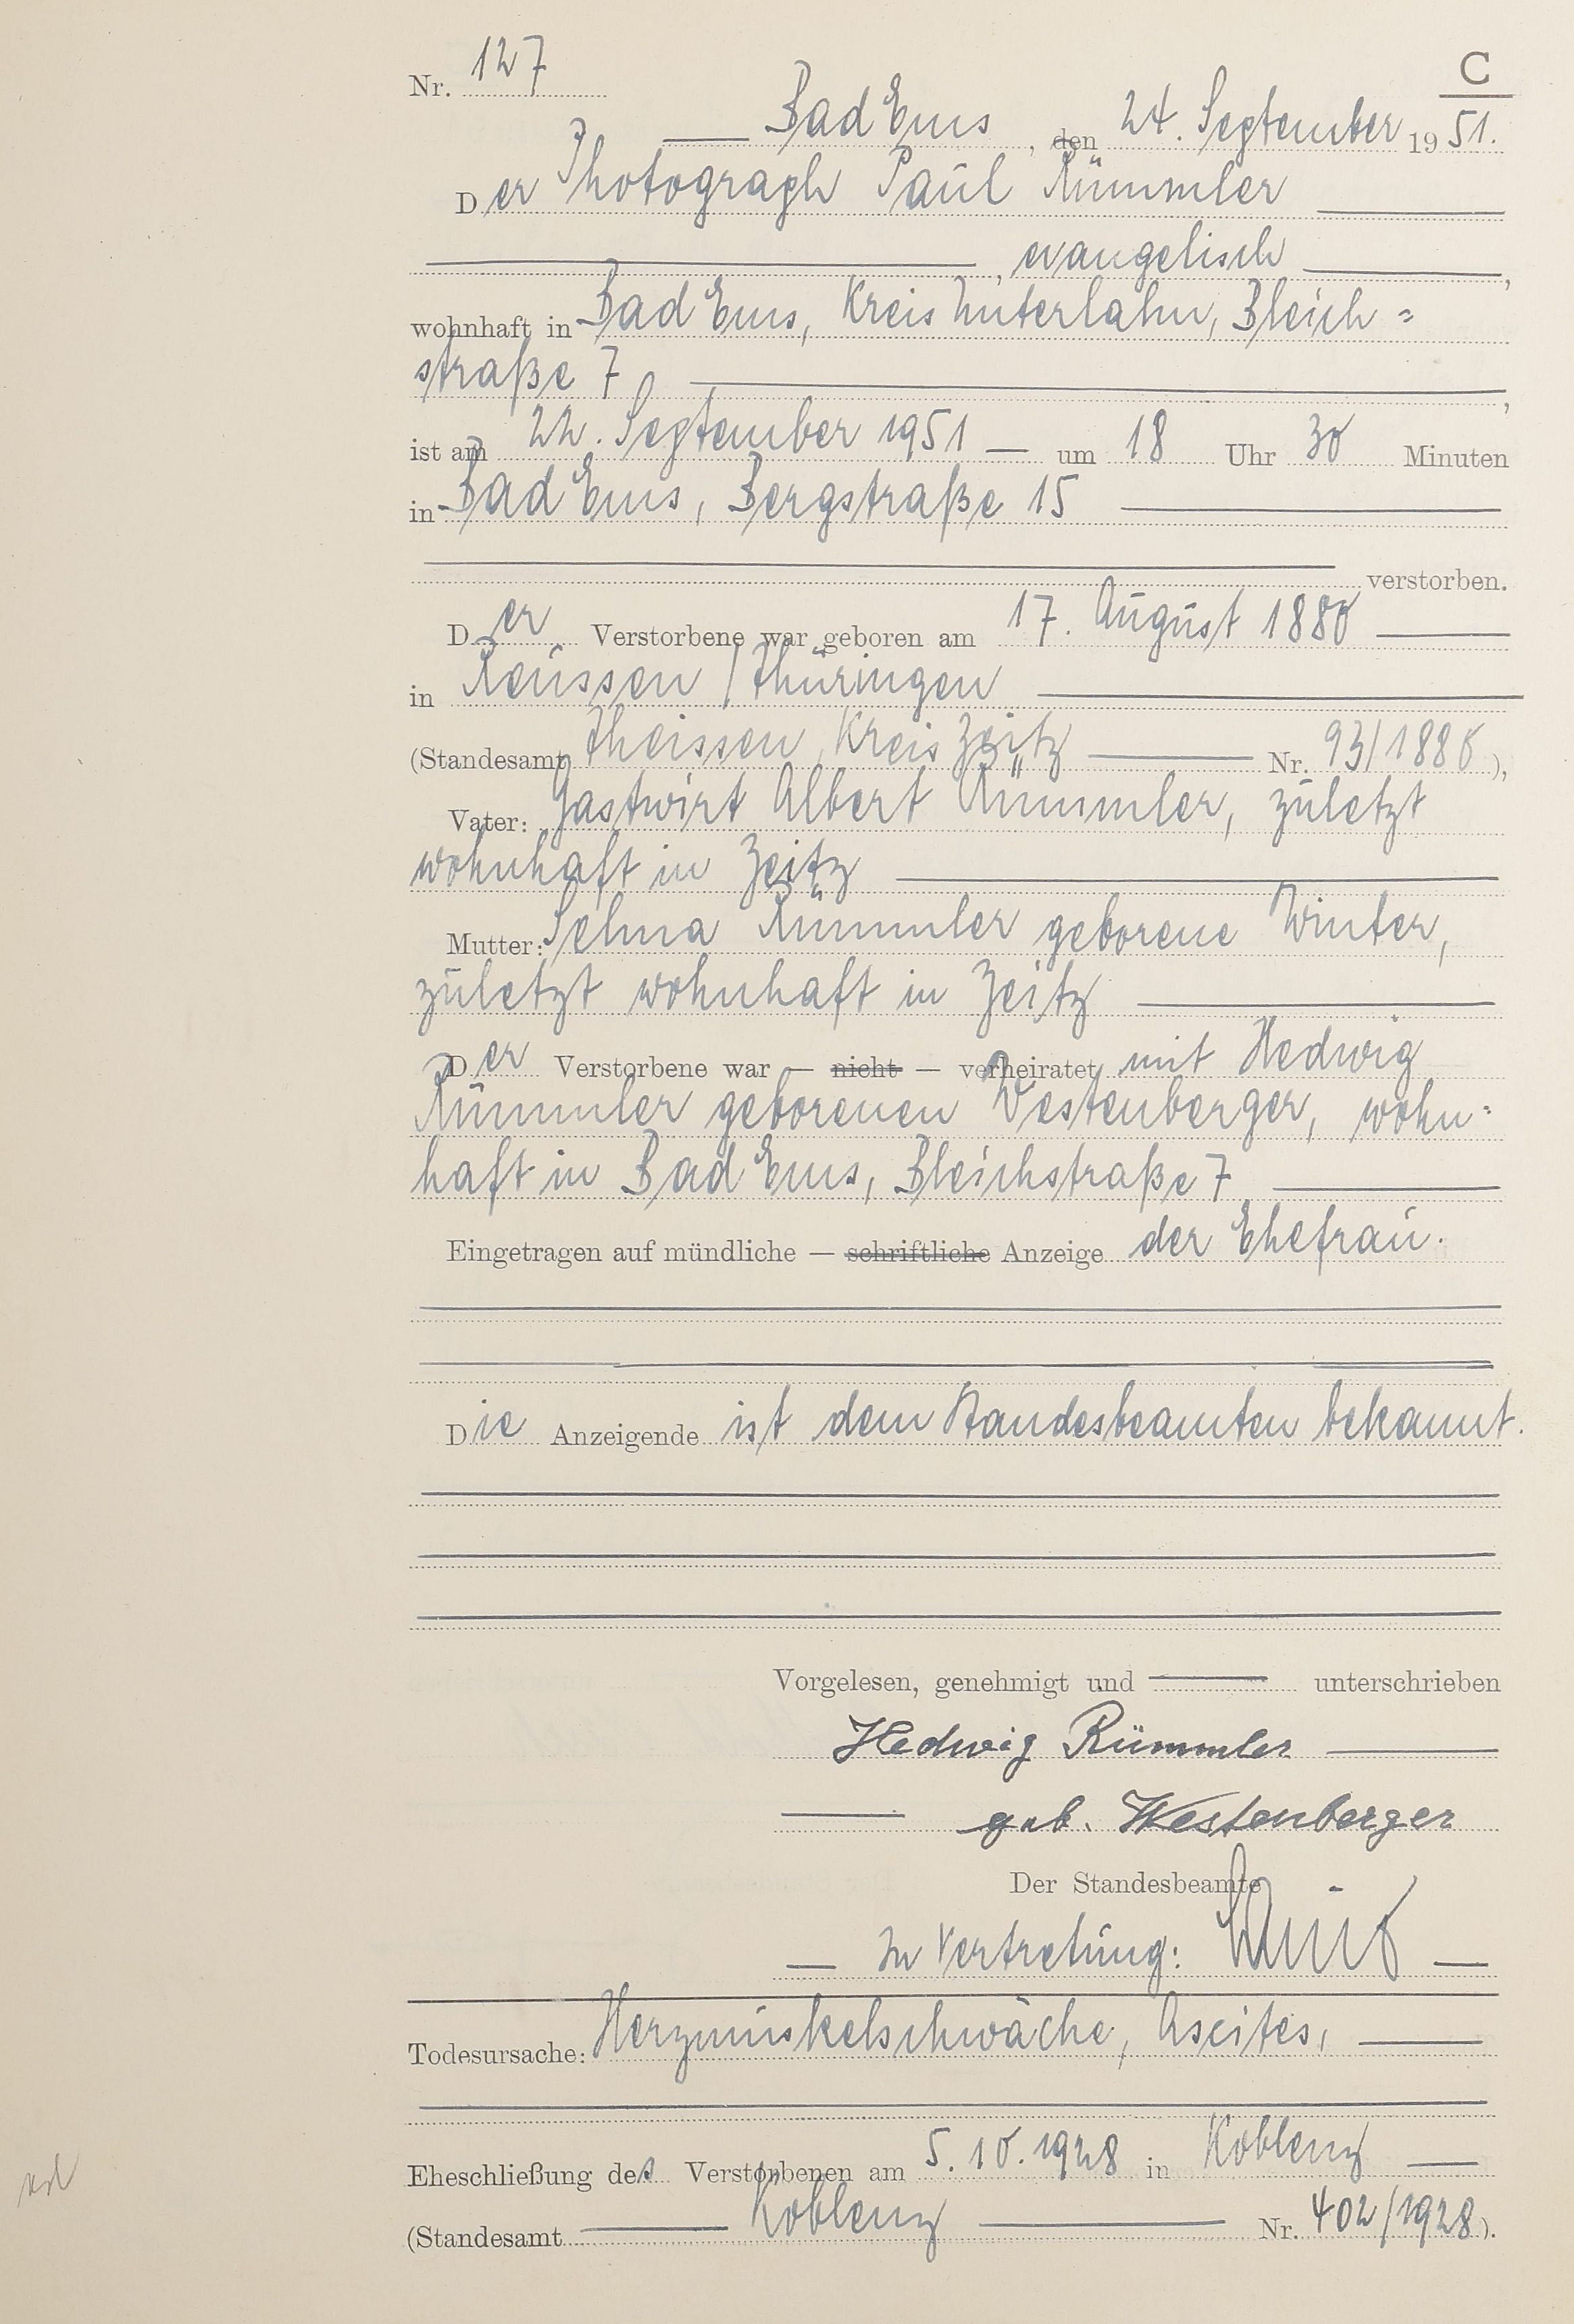 Nr. 127
C
Bad Ems, den 24. September 1951.
Der Photograph Paul Rümmler
, evangelisch,
wohnhaft in Bad Ems, Kreis Unterlahn, Bleich=
straße 7,
ist am 22. September 1951 — um 18 Uhr 30 Minuten
in Bad Ems, Bergstraße 15
verstorben.
Der Verstorbene war geboren am 17. August 1880
in Reussen / Thüringen
(Standesamt Theissen, Kreis Zeitz Nr. 93/1880),
Vater: Gastwirt Albert Rümmler, zuletzt
wohnhaft in Zeitz
Mutter: Selma Rümmler geborene Winter,
zuletzt wohnhaft in Zeitz
Der Verstorbene war — nicht — verheiratet mit Hedwig
Rümmler geborenen Westenberger, wohn=
haft in Bad Ems, Bleichstraße 7
Eingetragen auf mündliche — schriftliche Anzeige der Ehefrau.
Die Anzeigende ist dem Standesbeamten bekannt.
Vorgelesen, genehmigt und unterschrieben
Hedwig Rümmler
geb. Westenberger
Der Standesbeamte
In Vertretung:
Todesursache: Herzmuskelschwäche, Ascites,
Eheschließung des Verstorbenen am 5.10.1928 in Koblenz
(Standesamt Koblenz Nr. 402/1928).